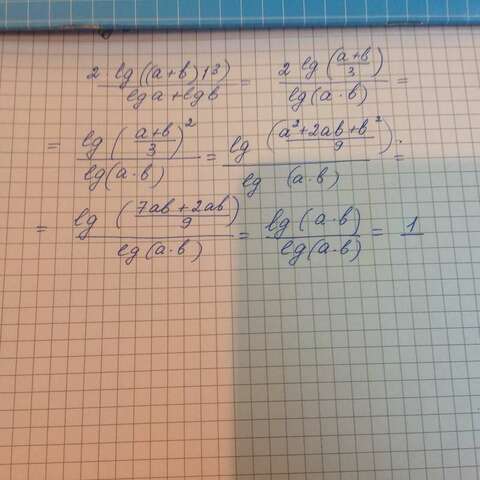 2·lg((a+b)/3) / lga+lgb = 2 lg((a+b)/3) / lg(a·b) =
= lg((a+b)/3)² / lg(a·b) = lg((a²+2ab+b²)/9) / lg (a·b) =
= lg((7ab+2ab)/9) / lg(a·b) = lg(a·b) / lg(a·b) = 1